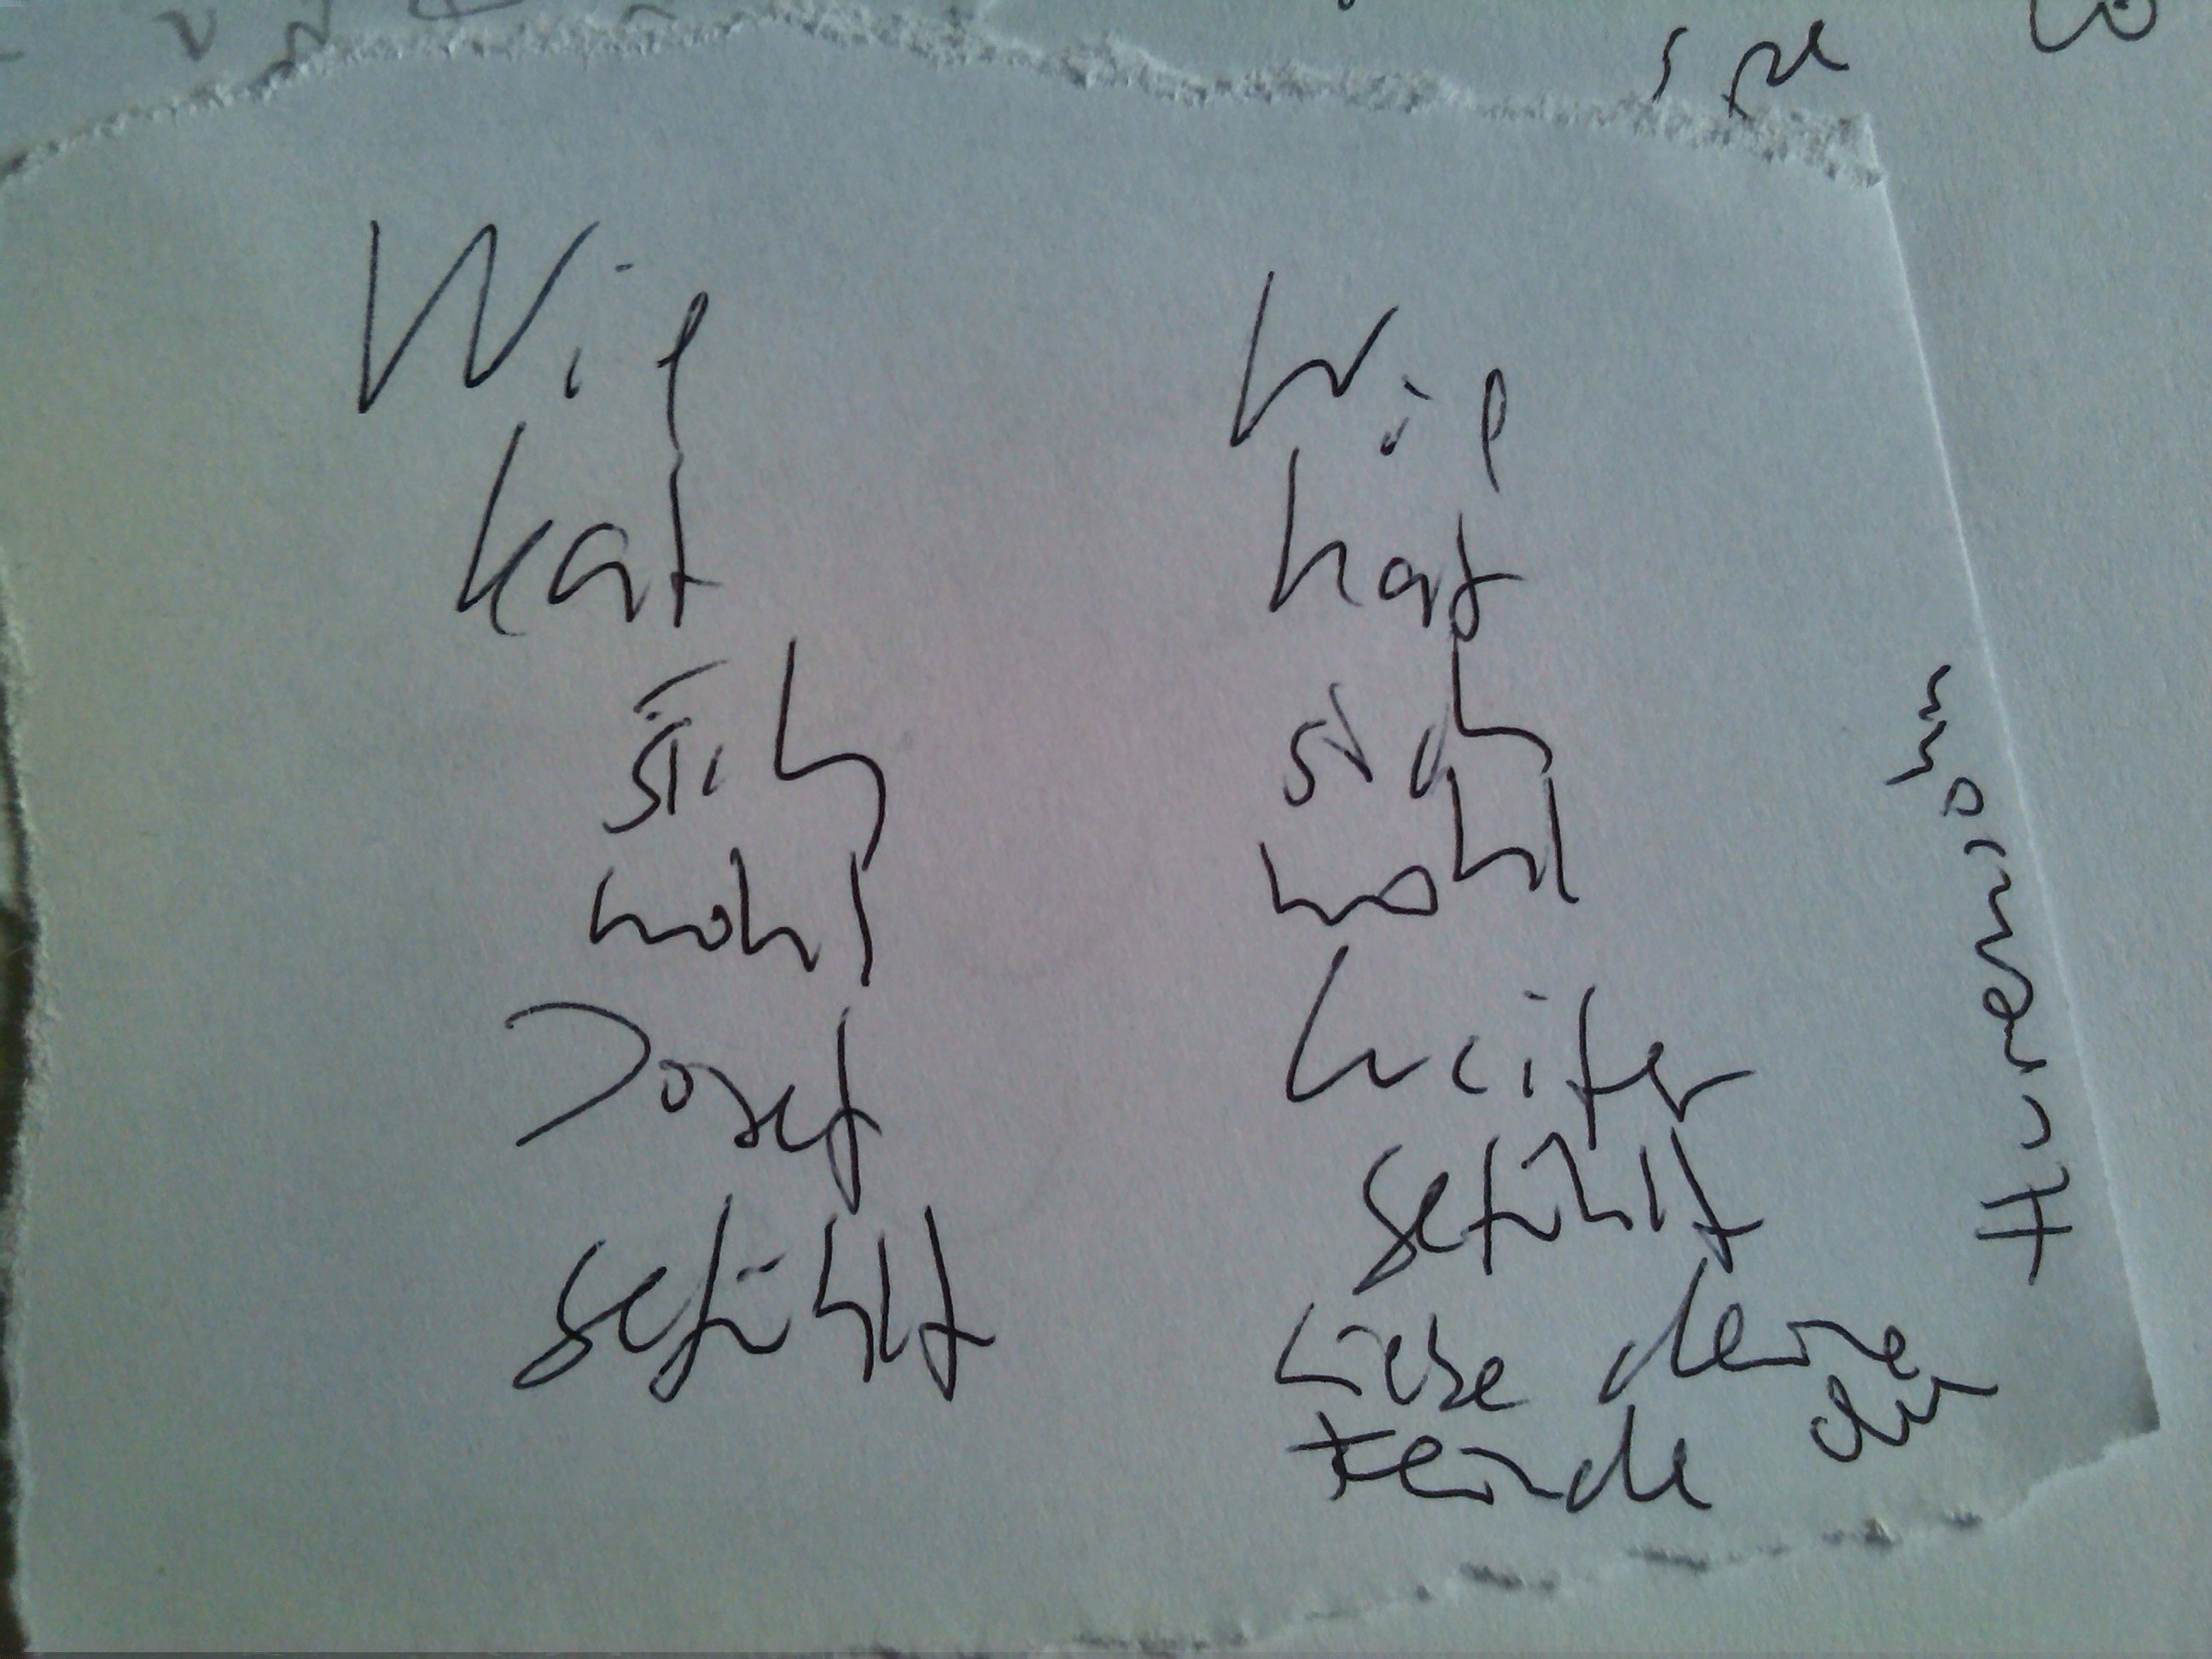 Wie
hat
sich
wohl
Josef
gefühlt
Wie
hat
sich
wohl
Lucifer
gefühlt
Liebe deine
Feinde